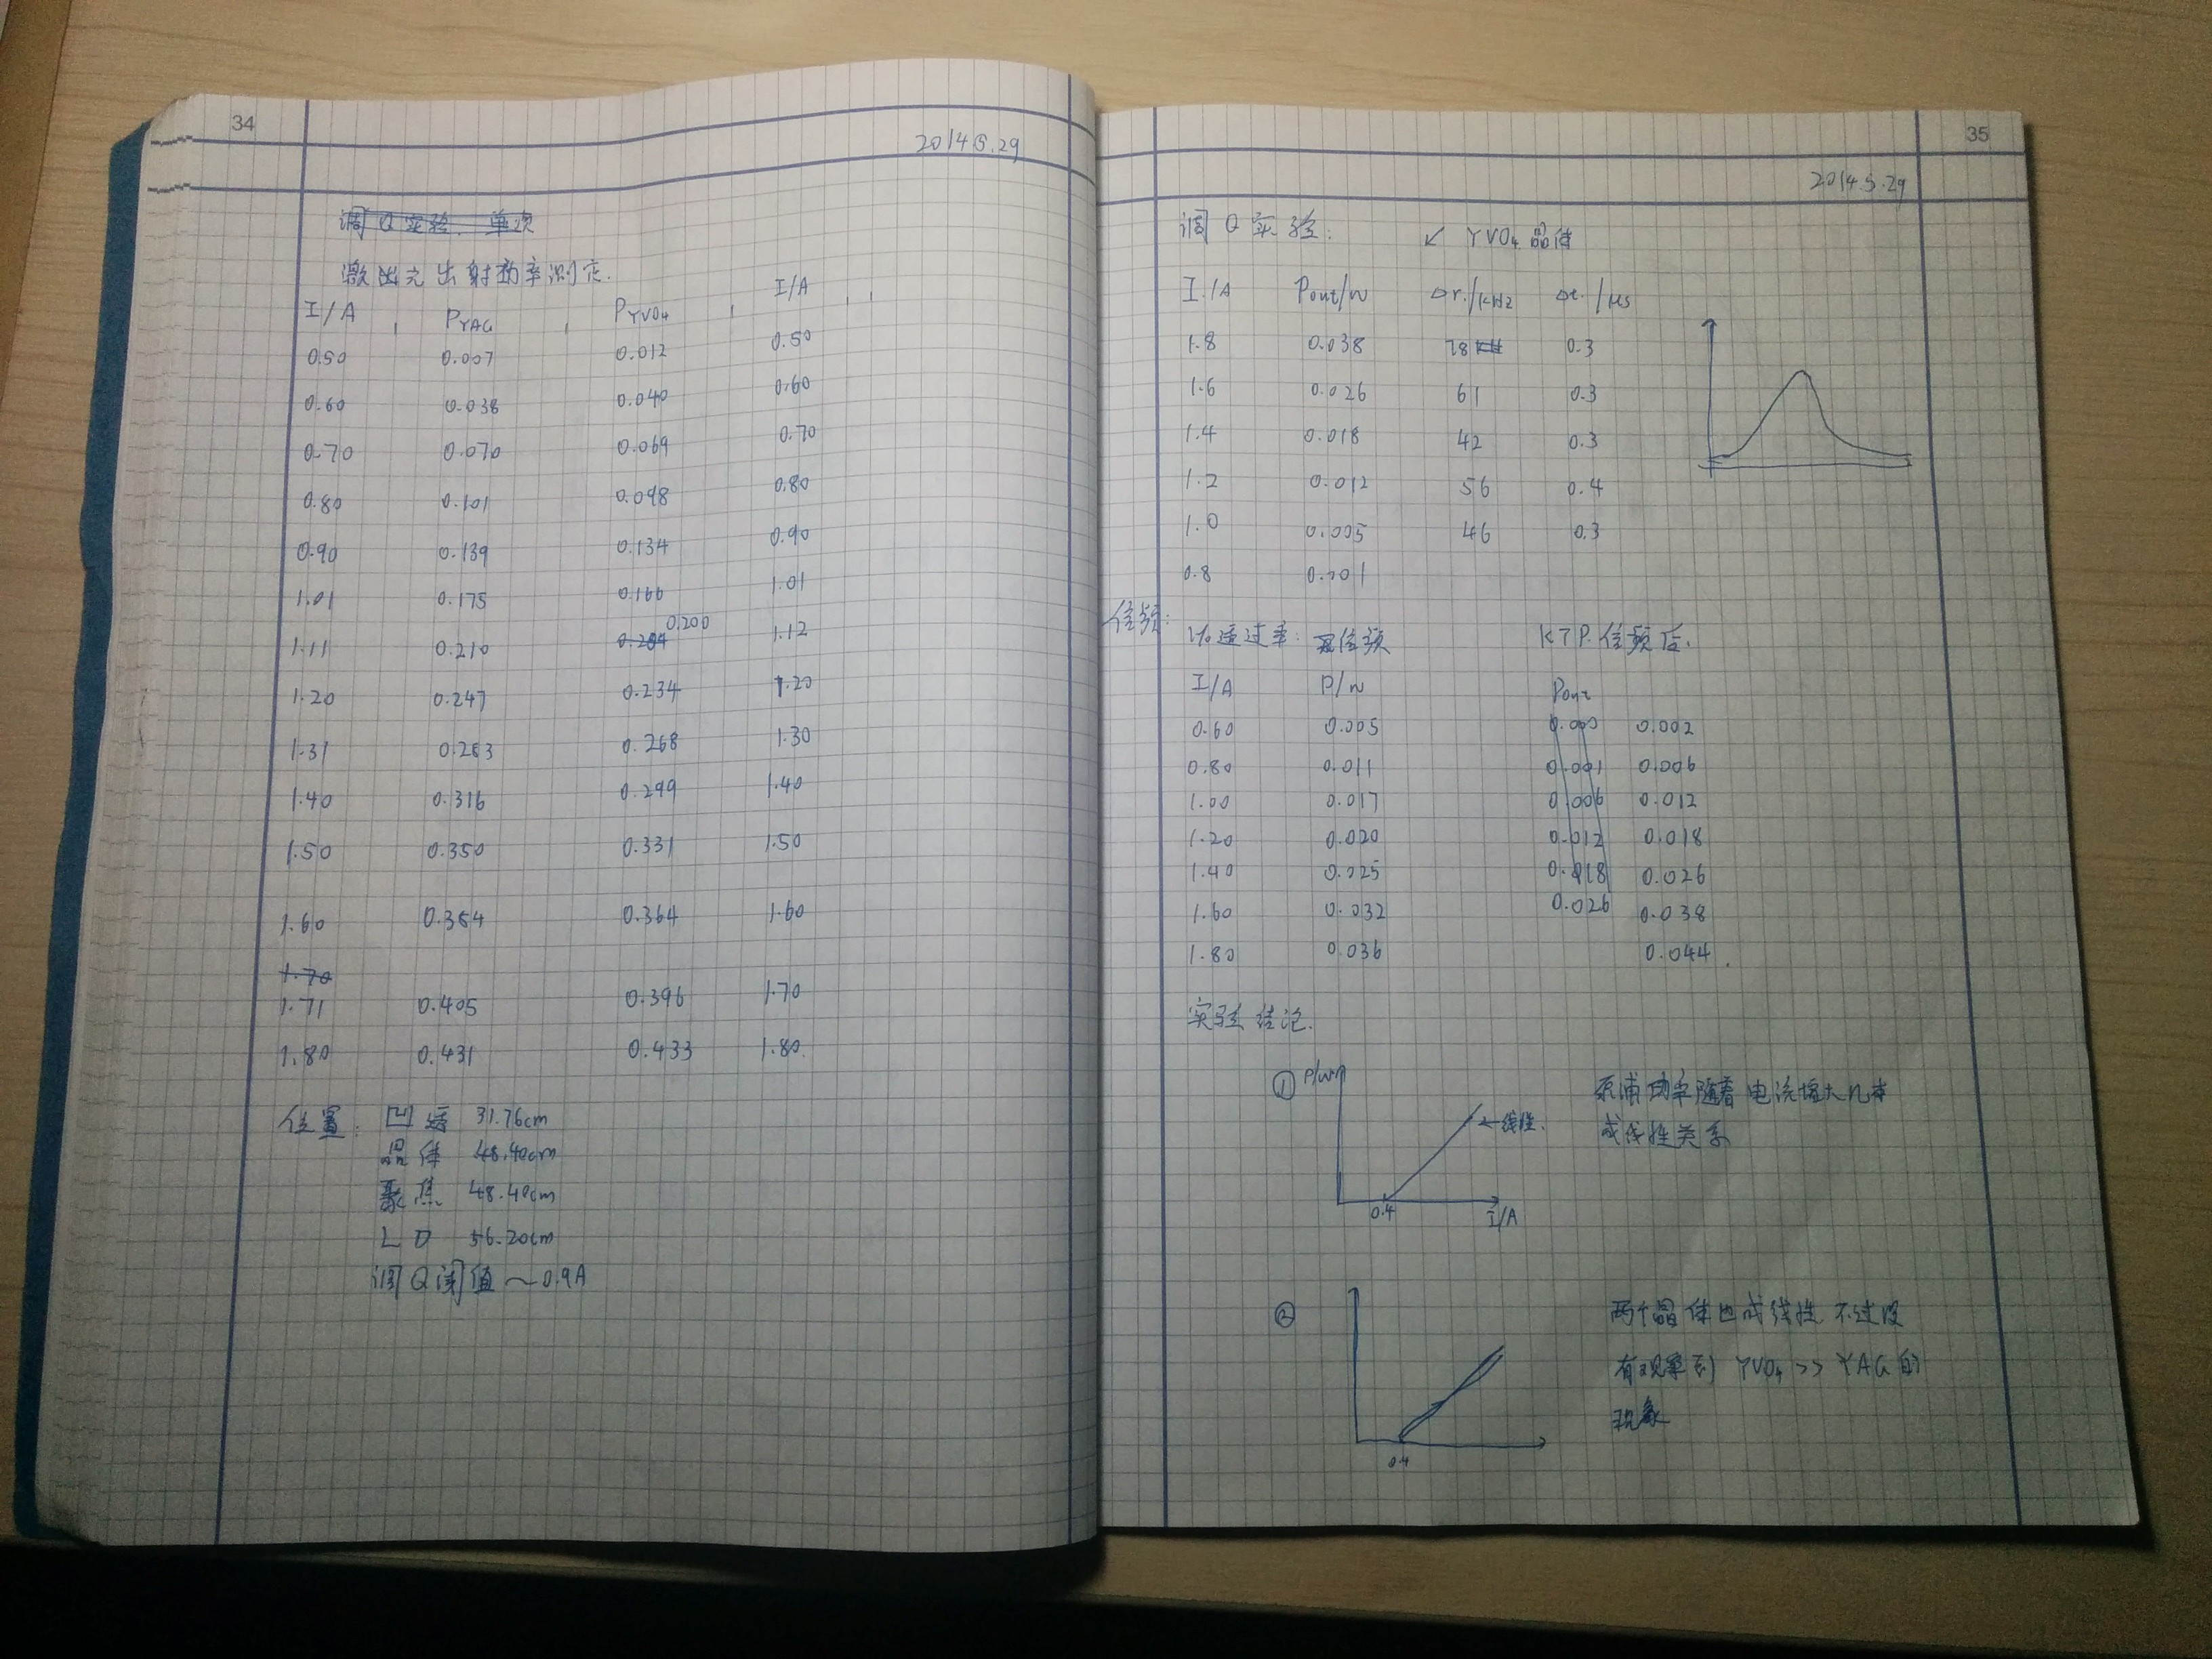 34
2014.5.29
调Q实验. 单次
激光出射功率测定.
I/A P_YAG P_YVO4 I/A
0.50 0.007 0.012 0.50
0.60 0.038 0.040 0.60
0.70 0.070 0.069 0.70
0.80 0.101 0.098 0.80
0.90 0.139 0.134 0.90
1.01 0.175 0.166 1.01
1.11 0.210 0.204 0.200 1.12
1.20 0.247 0.234 1.20
1.31 0.283 0.268 1.30
1.40 0.316 0.299 1.40
1.50 0.350 0.331 1.50
1.60 0.384 0.364 1.60
1.70
1.71 0.405 0.396 1.70
1.80 0.431 0.433 1.80
位置: 凹透 31.76cm
晶体 48.40cm
聚焦 48.40cm
LD 56.20cm
调Q阈值~0.9A
35
2014.5.29
调Q实验: ↙ YVO4晶体
I/A Pout/w Δr/kHz Δt/μs
1.8 0.038 78 0.3
1.6 0.026 61 0.3
1.4 0.018 42 0.3
1.2 0.012 56 0.4
1.0 0.005 46 0.3
0.8 0.001
倍频:
1%透过率: 倍频 KTP.倍频后.
I/A P/w Pout
0.60 0.005 0.000 0.002
0.80 0.011 0.001 0.006
1.00 0.017 0.006 0.012
1.20 0.020 0.012 0.018
1.40 0.025 0.018 0.026
1.60 0.032 0.026 0.038
1.80 0.036 0.044
实验结论.
① P/w ←线性. 泵浦功率随着电流增大几乎
成线性关系
0.4 I/A
② 两个晶体也成线性 不过没
有观察到 YVO4 >> YAG 的
现象
0.4